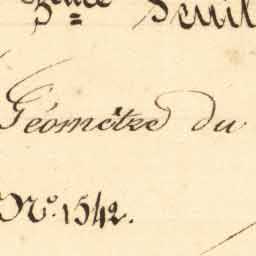 Feuil
Géomètre du
N.º 1542.